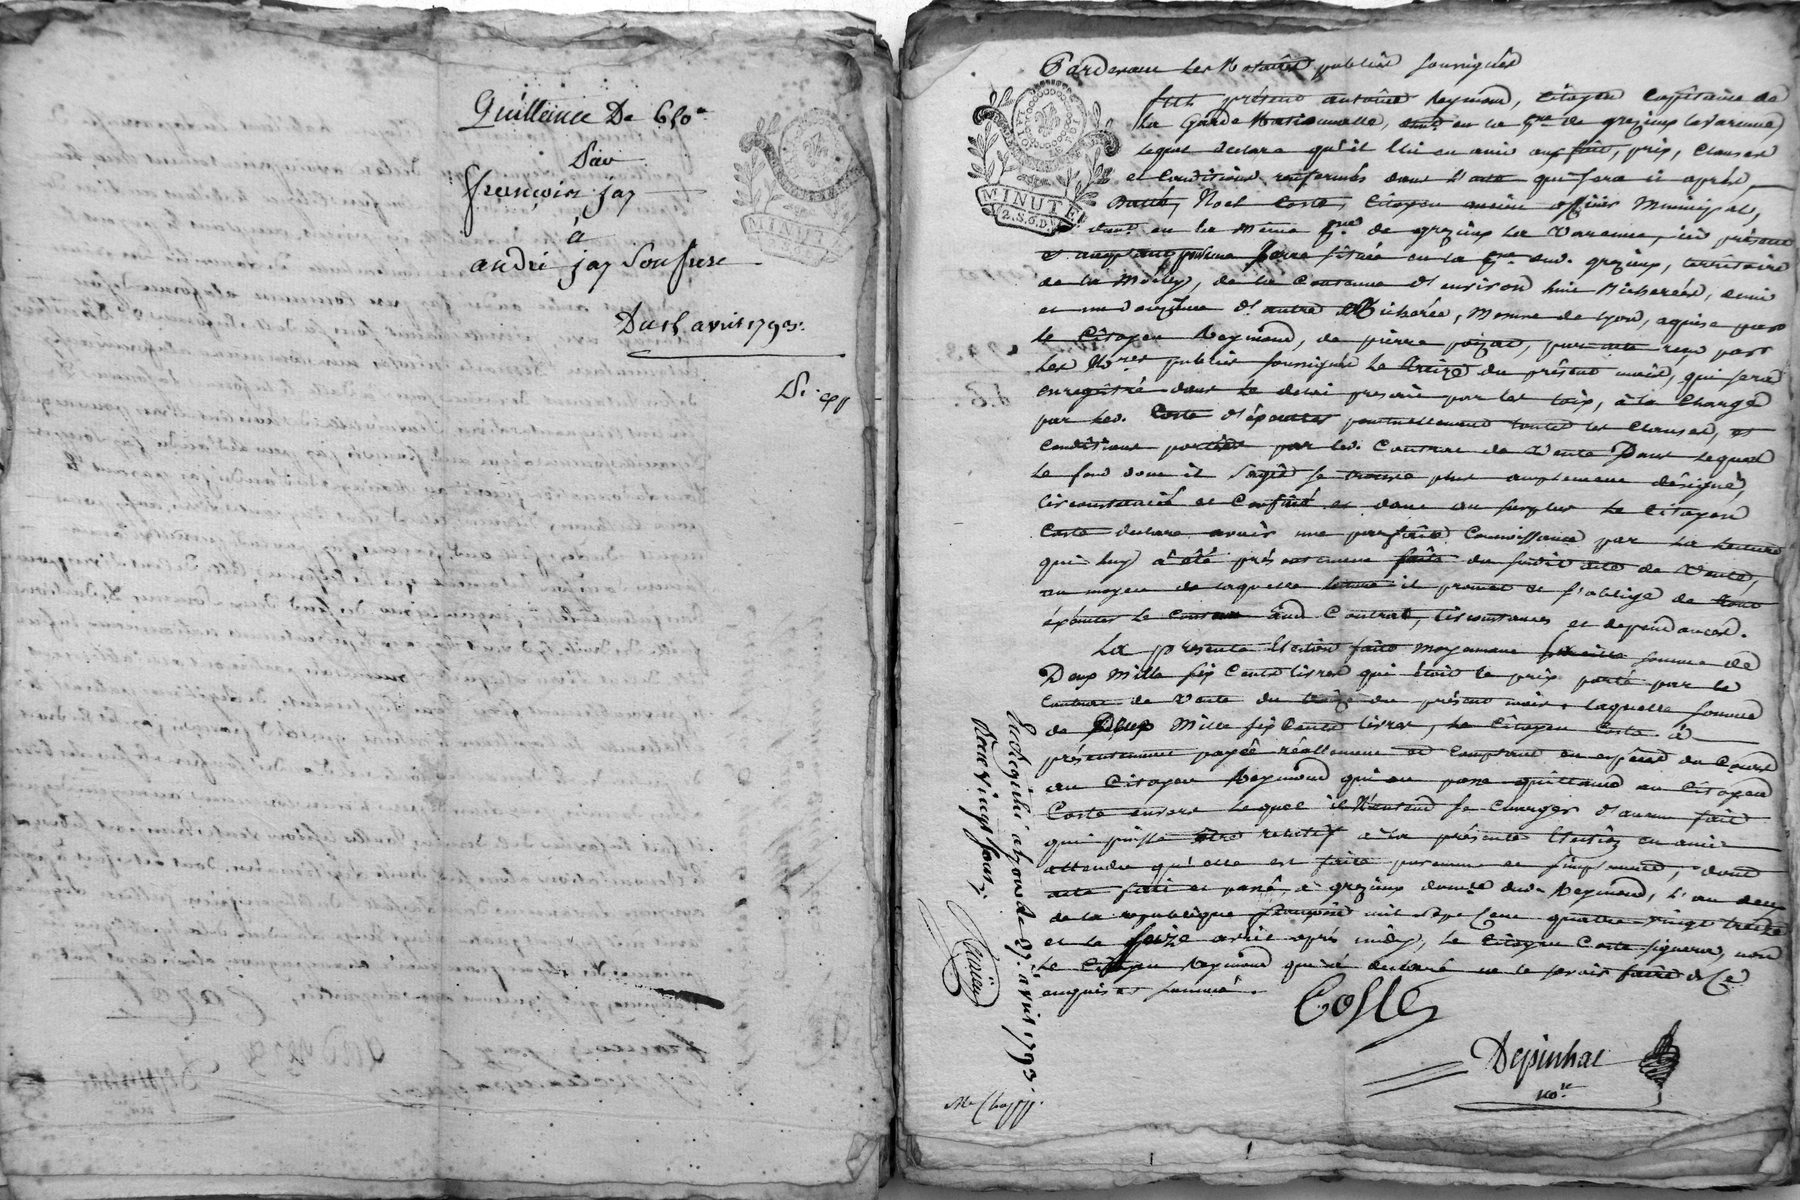 Quittance De 650#
Par
françois jay
a
andré jay Son frere
Du 15 avril 1793.
MINUTE
Pardevant Les Notaires publics soussignés
MINUTE
2.S.6.D
fut présent antoine Reymond, Citoyen Capitaine de
La Garde Nationnalle, demt. en la de grezieux lavarenne,
lequel declare qu'il Elit en ami aux fait, prix, Clauses
et Conditions renfermés dans L'acte qui sera ci après
Noel Coste, Citoyen ancien officier Municipal,
demt. en la meme de grezieux La Varenne, ici présent
et acceptant, une Terre située en la dud. grezieux, territoire
de la de la Contenue d'environ huit Bicherées, demi
et un d'autre Bicherée, Mesure de lyon, aquise par
Le Citoyen Reymond, de pierre par acte reçu par
Les Nores. publics soussignés Le treize du présent mois, qui sera
enregistré dans Le delai prescrit par les loix, à la Charge
par led. Coste d'éxécuter ponctuellement toutes les Clauses, et
Conditions portées par led. Contrat de Vente Dans Lequel
Le fond dont il s'agit se trouve plus amplement désigné,
Circonstancié et Confiné et dont au surplus Le Citoyen
Coste declare avoir une parfaite Connoissance par La Lecture
qui luy à été présentement faite du susdit acte de Vente,
au moyen de laquelle il promet et s'oblige de tout
éxécuter Le Contenu aud. Contrat, Circonstances et dependances.
La présente Election faite moyennant somme de
Deux Mille six Cents livres qui étoit le prix porté par le
Contrat de Vente du treize du présent mois, laquelle somme
de Deux Mille six Cents livres, Le Citoyen Coste a
présentement payée réellement et Comptant en especes du Cours
au Citoyen Reymond qui en passe quittance au Citoyen
Coste envers Lequel il N'entend se Charger d'aucun fait
qui puisse être relatif à La présente Election en ami
attendu qu'elle est faite purement et simplement, dont
acte fait et passé à grezieux domcile dud. Reymond, L'an deux
de la république françoise mil sept Cent quatre vingt treize
et Le seize avril après midy, Le Citoyen Coste signera, non
Le Citoyen Reymond qui a declaré ne le savoir faire de Ce
enquis et sommé.
Coste
Depinhac
no.re
Enregistré a le 27 avril 1793.
Reçu vingt sous